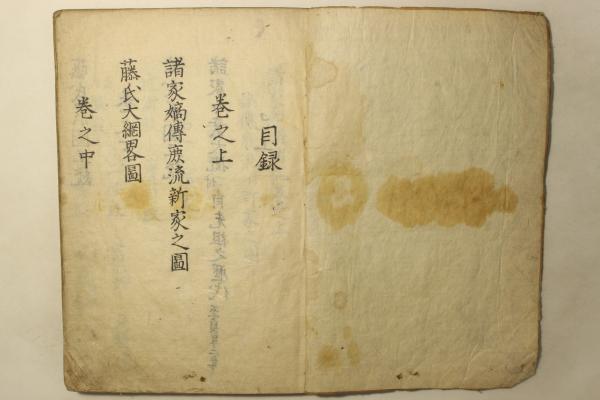 目録
巻之上
諸家嫡傳庻流新家之圖
藤氏大綱畧圖
巻之中